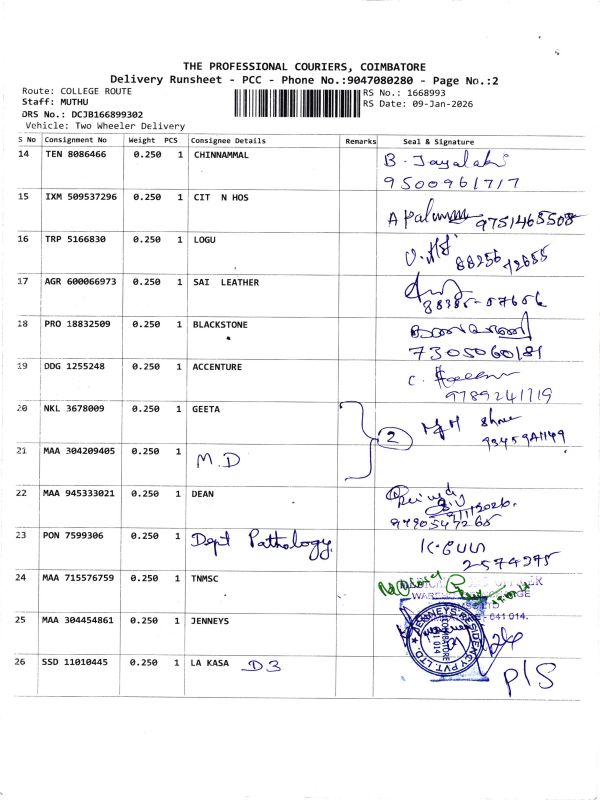 THE PROFESSIONAL COURIERS, COIMBATORE
Delivery Runsheet - PCC - Phone No.:9047080280 - Page No.:2
Route: COLLEGE ROUTE
RS No.: 1668993
Staff: MUTHU
RS Date: 09-Jan-2026
DRS No.: DCJB166899302
Vehicle: Two Wheeler Delivery
S No Consignment No Weight PCS Consignee Details Remarks Seal & Signature
14 TEN 8086466 0.250 1 CHINNAMMAL B. Jayalaksmi
9500961717
15 IXM 509537296 0.250 1 CIT N HOS
9751465508
16 TRP 5166830 0.250 1 LOGU
88256 72655
17 AGR 600066973 0.250 1 SAI LEATHER
88385-07656
18 PRO 18832509 0.250 1 BLACKSTONE
7305060181
19 DDG 1255248 0.250 1 ACCENTURE
9789241719
20 NKL 3678009 0.250 1 GEETA
2
21 MAA 304209405 0.250 1 M.D
22 MAA 945333021 0.250 1 DEAN
9/1/2026.
9790547265
23 PON 7599306 0.250 1 Dept Pathology
2574375
24 MAA 715576759 0.250 1 TNMSC
641 014.
25 MAA 304454861 0.250 1 JENNEYS
JENNEYS RESIDENCY PVT. LTD.
COIMBATORE
641 014
26 SSD 11010445 0.250 1 LA KASA D3
P/S